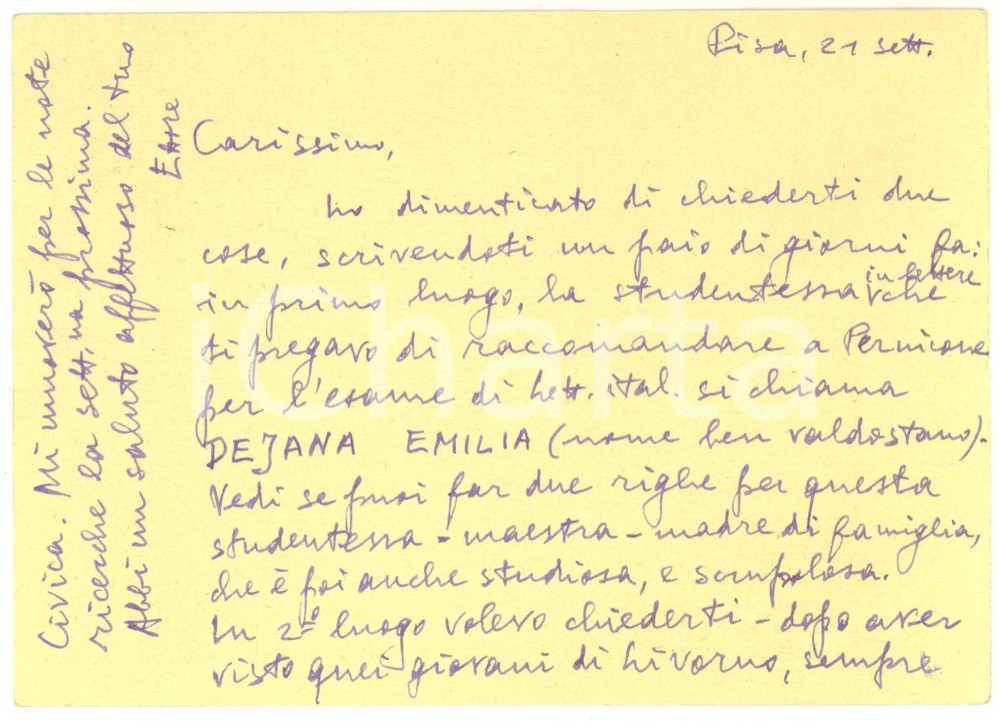 Pisa, 21 sett.
Carissimo,
ho dimenticato di chiederti due
cose, scrivendoti un paio di giorni fa:
in primo luogo, la studentessa in lettere che
ti pregavo di raccomandare a Pernicone
per l'esame di Lett. ital. si chiama
DEJANA EMILIA (nome ben valdostano).
Vedi se puoi far due righe per questa
studentessa - maestra - madre di famiglia,
che è poi anche studiosa, e scrupolosa.
In 2º luogo volevo chiederti - dopo aver
visto quei giovani di Livorno, sempre
Civica. Mi muoverò per le note
ricerche la sett.na prossima.
Abbi un saluto affettuoso del tuo
Ettore
iCharta